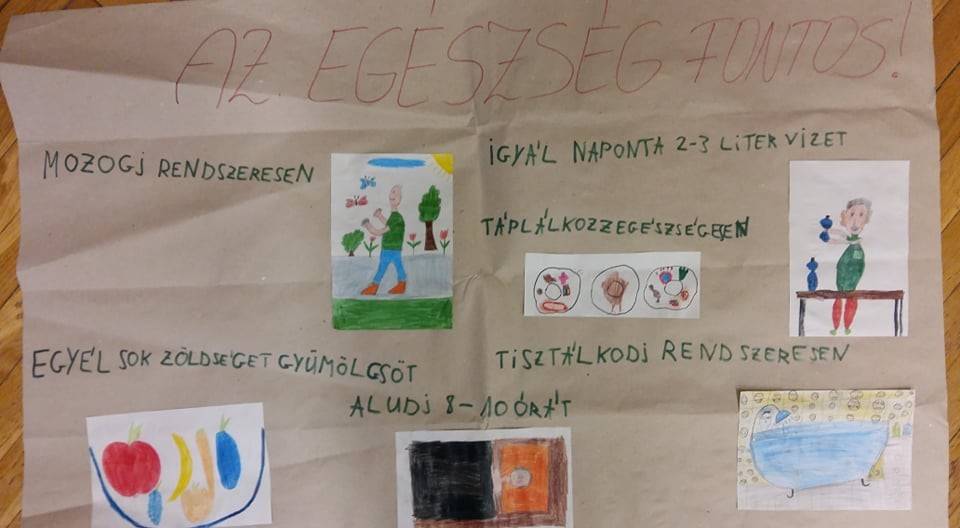 AZ EGÉSZSÉG FONTOS!
MOZOGJ RENDSZERESEN
IGYÁL NAPONTA 2-3 LITER VIZET
TÁPLÁLKOZZ EGÉSZSÉGESEN
EGYÉL SOK ZÖLDSÉGET GYÜMÖLCSÖT
TISZTÁLKODJ RENDSZERESEN
ALUDJ 8-10 ÓRÁT